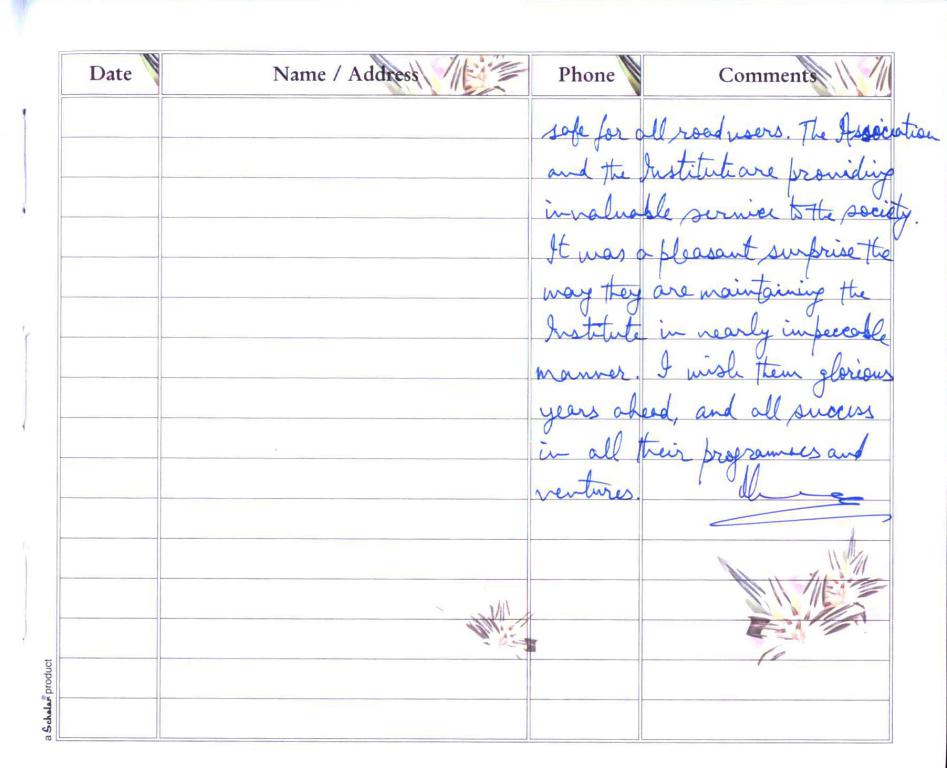 Date Name / Address Phone Comments
safe for all road users. The Association
and the Institute are providing
invaluable service to the society.
It was a pleasant surprise the
way they are maintaining the
Institute in nearly impeccable
manner. I wish them glorious
years ahead, and all success
in all their programmes and
ventures.
a Scholar product